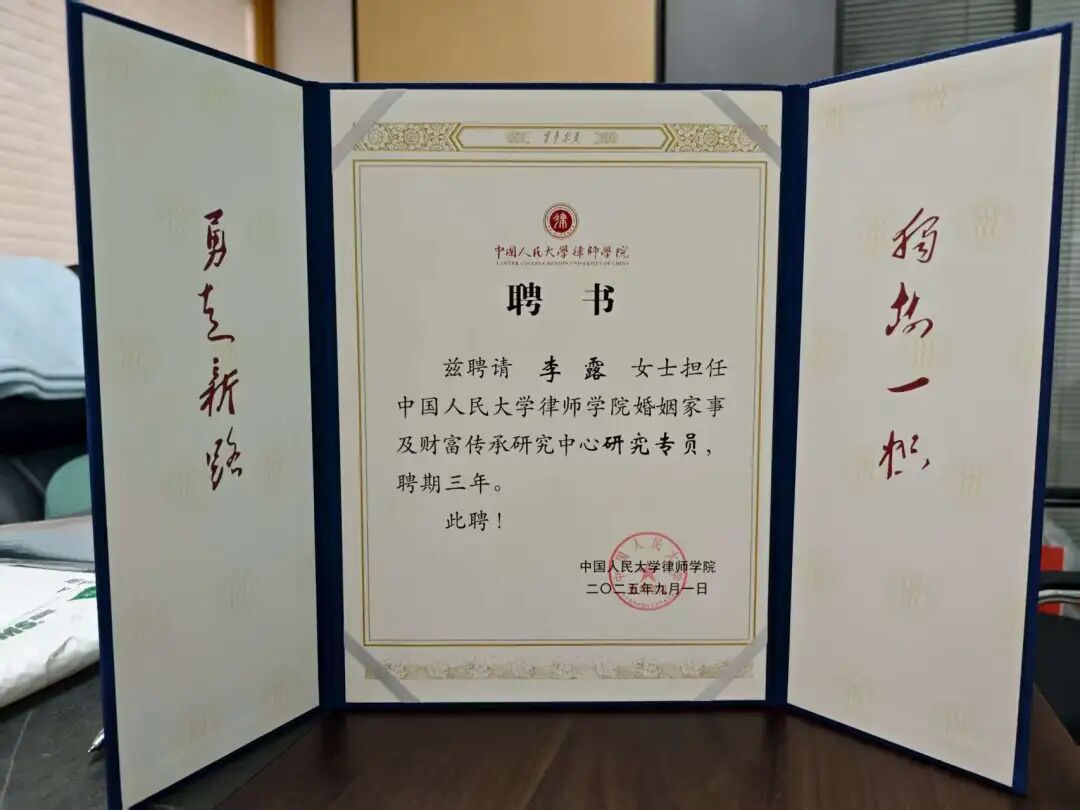 实事求是
勇立新路
独树一帜
律
中国人民大学律师学院
LAWYER COLLEGE RENMIN UNIVERSITY OF CHINA
聘 书
兹聘请 李 露 女士担任
中国人民大学律师学院婚姻家事
及财富传承研究中心研究专员，
聘期三年。
此聘！
中国人民大学律师学院
二〇二五年九月一日